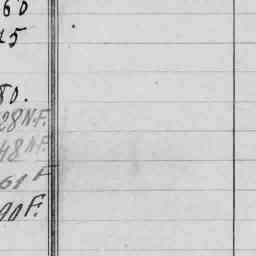 60
15
80.
28 N.F.
48 N.F.
61 F
90 F.